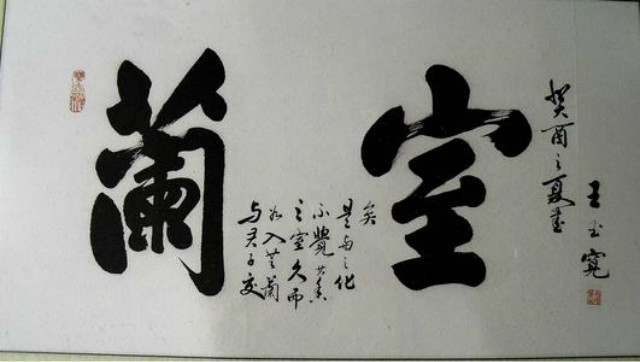 蘭室
与君子交
如入芝蘭
之室久而
不覺其香
是与之化
矣
癸酉之夏書
王玉寬